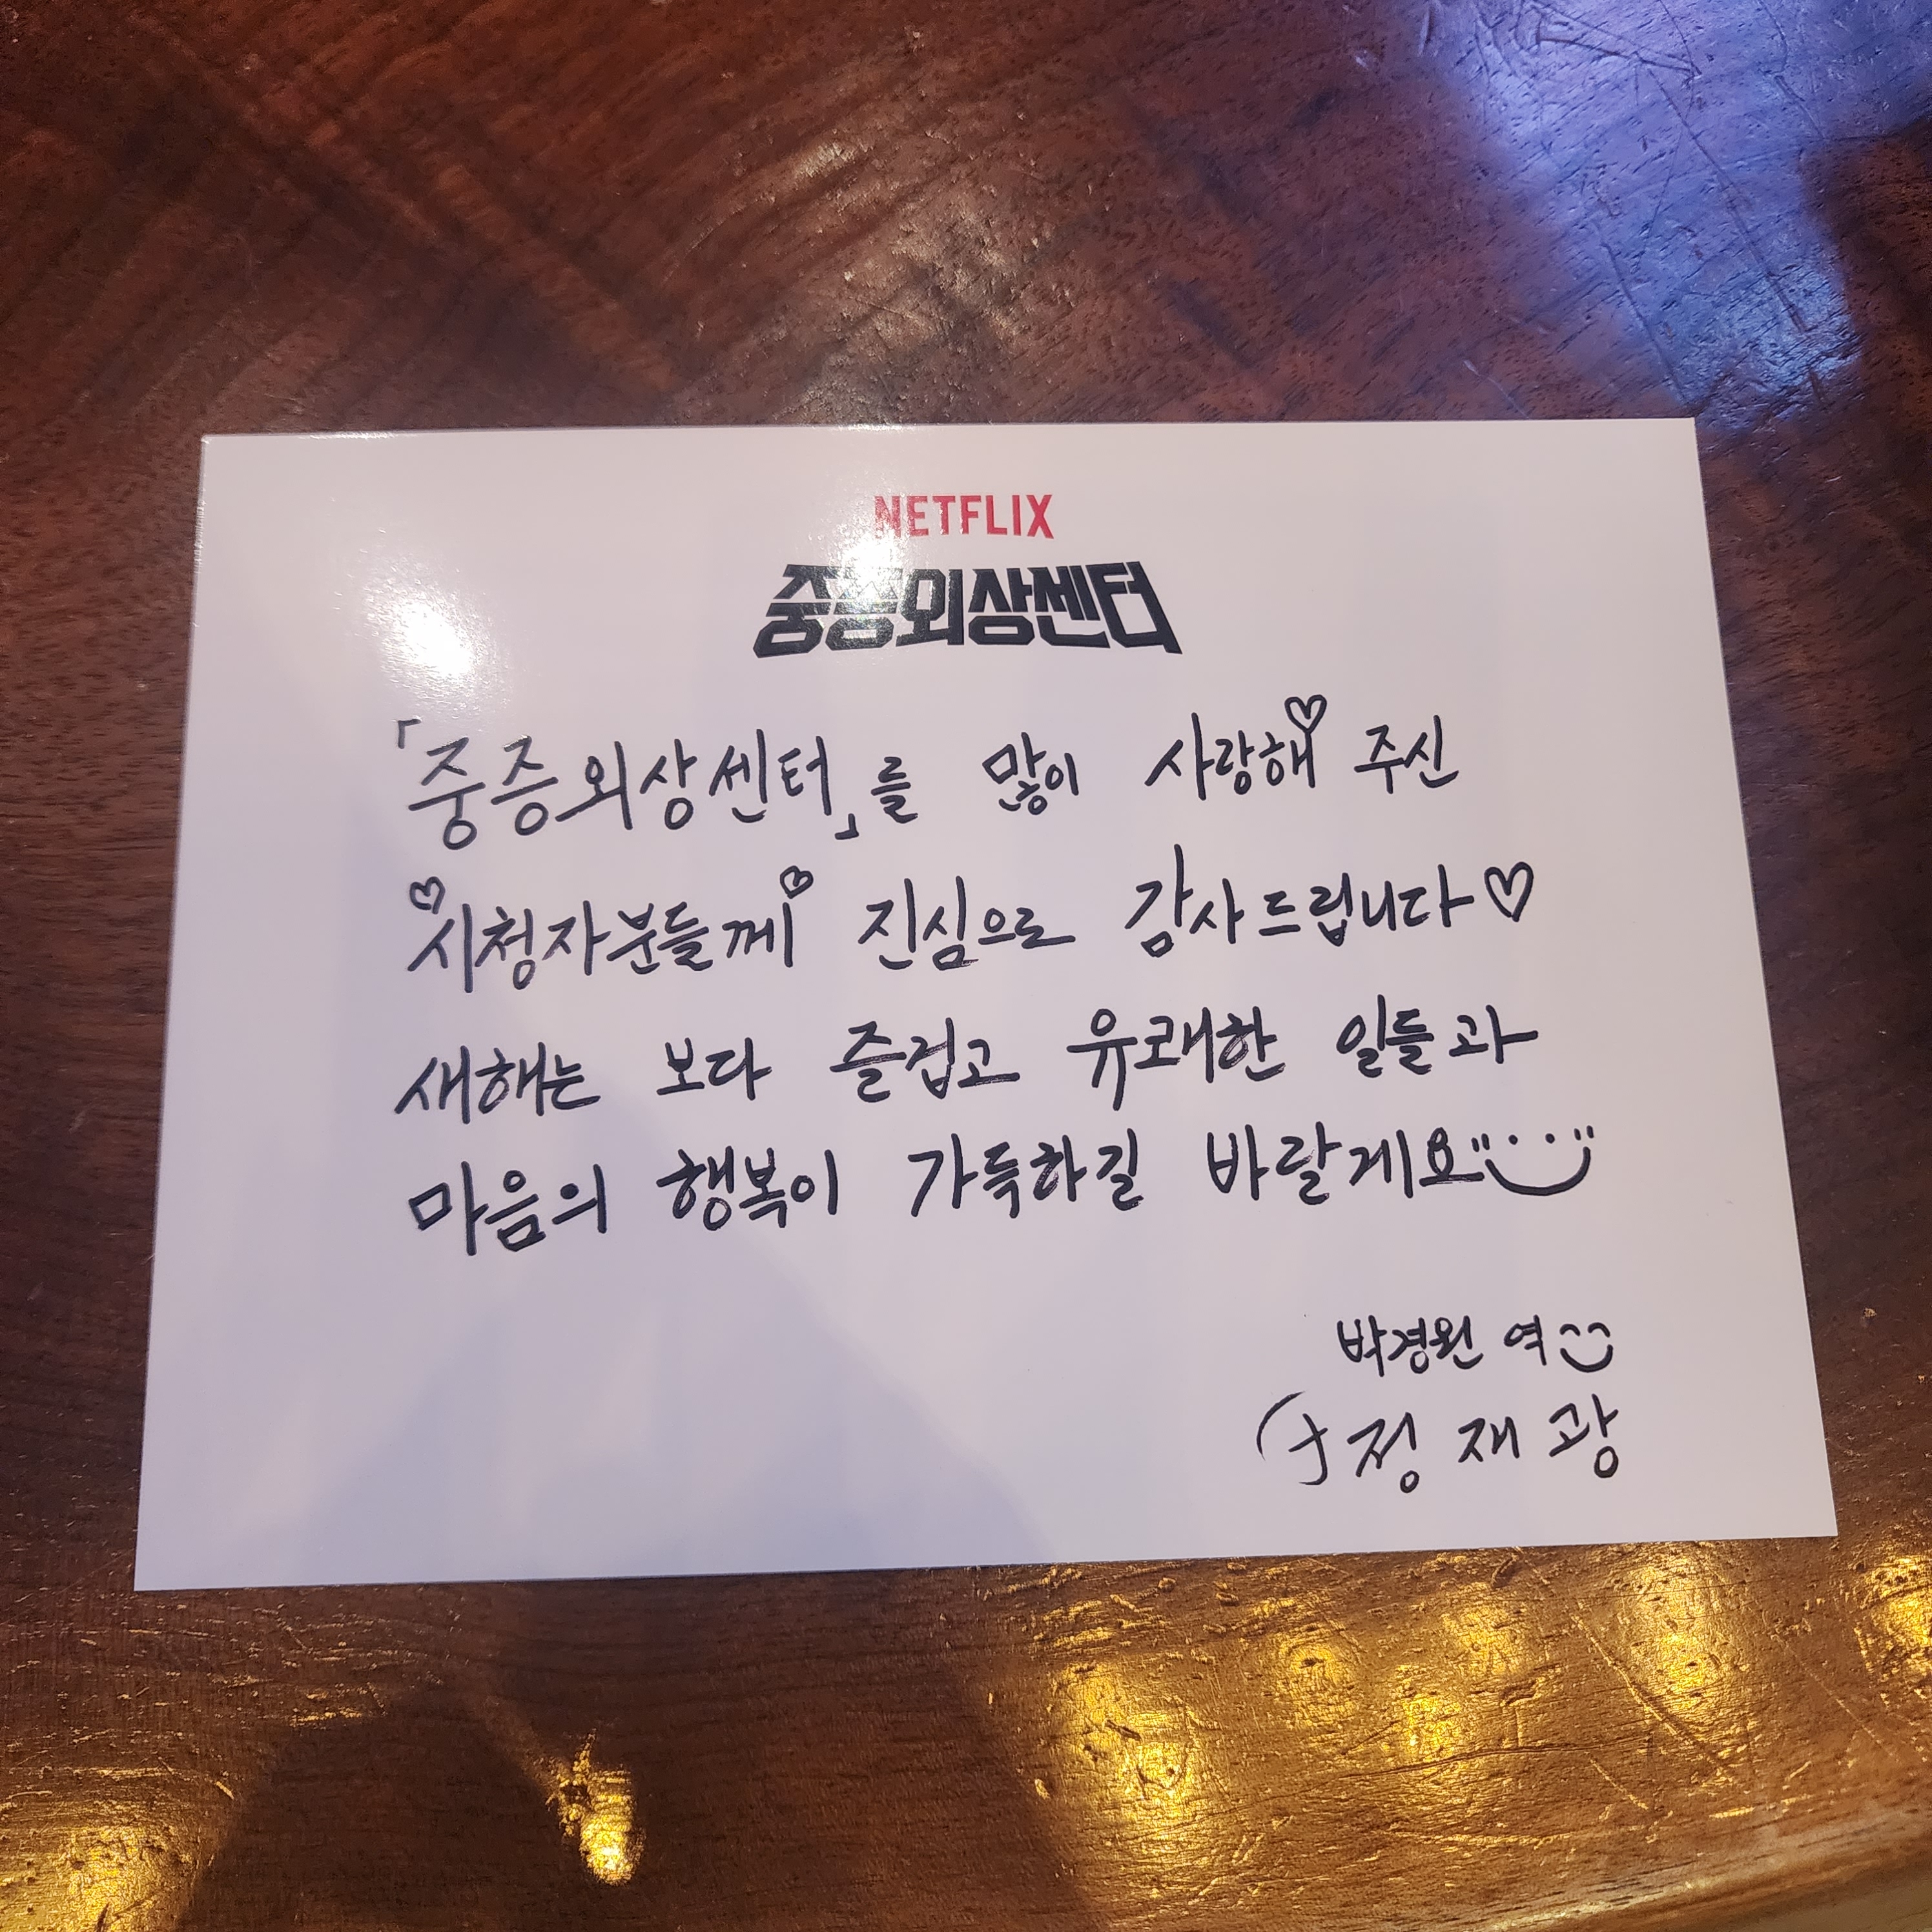 NETFLIX
중증외상센터
「중증외상센터」를 많이 사랑해♡ 주신
♡시청자분들께♡ 진심으로 감사드립니다♡
새해는 보다 즐겁고 유쾌한 일들과
마음의 행복이 가득하길 바랄게요
박경원 역
정재광